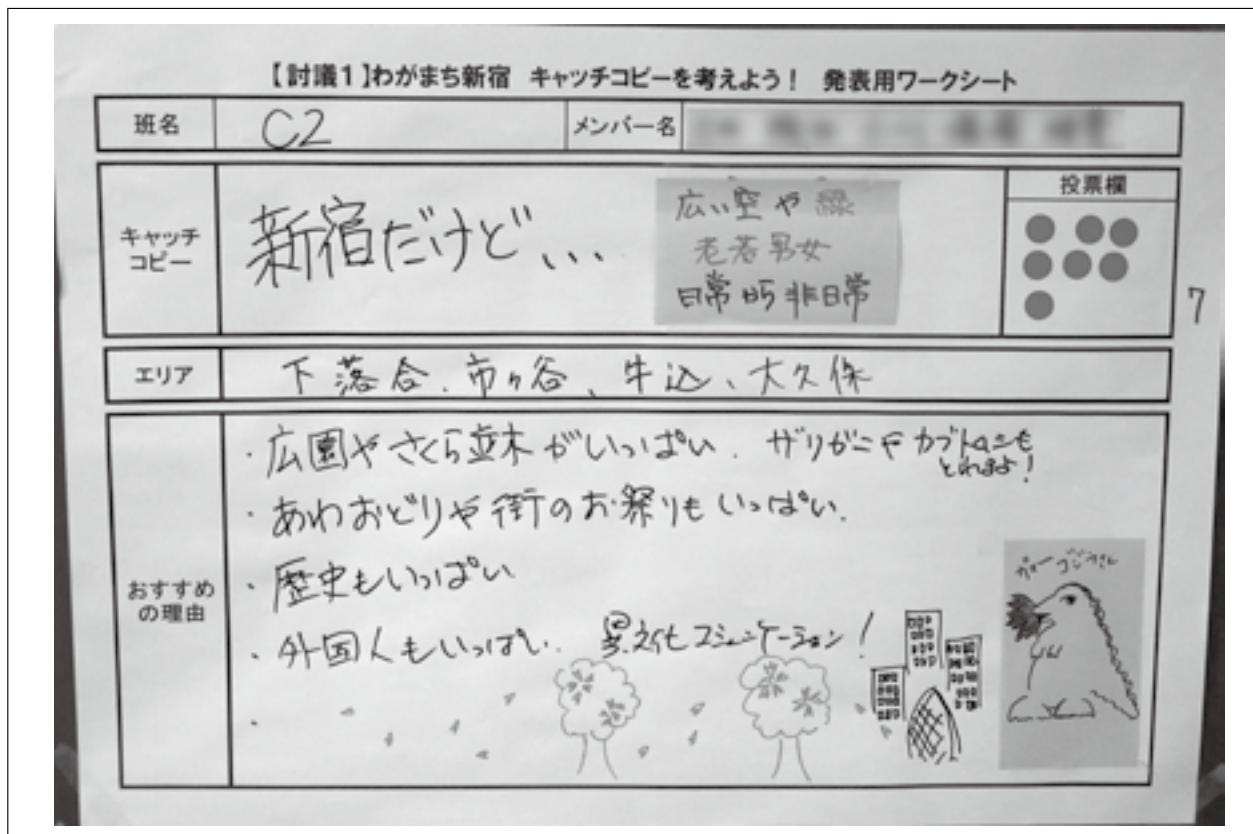 【討議1】わがまち新宿 キャッチコピーを考えよう! 発表用ワークシート
班名 C2 メンバー名
キャッチコピー 新宿だけど、、、
広い空や緑
老若男女
日常から非日常
投票欄
7
エリア 下落合、市ヶ谷、牛込、大久保
おすすめの理由
・広園やさくら並木がいっぱい. ザリガニやカブトムシも
とれるよ!
・あわおどりや街のお祭りもいっぱい.
・歴史もいっぱい
・外国人もいっぱい. 異文化コミュニケーション!
・
ガオー ゴジラさん